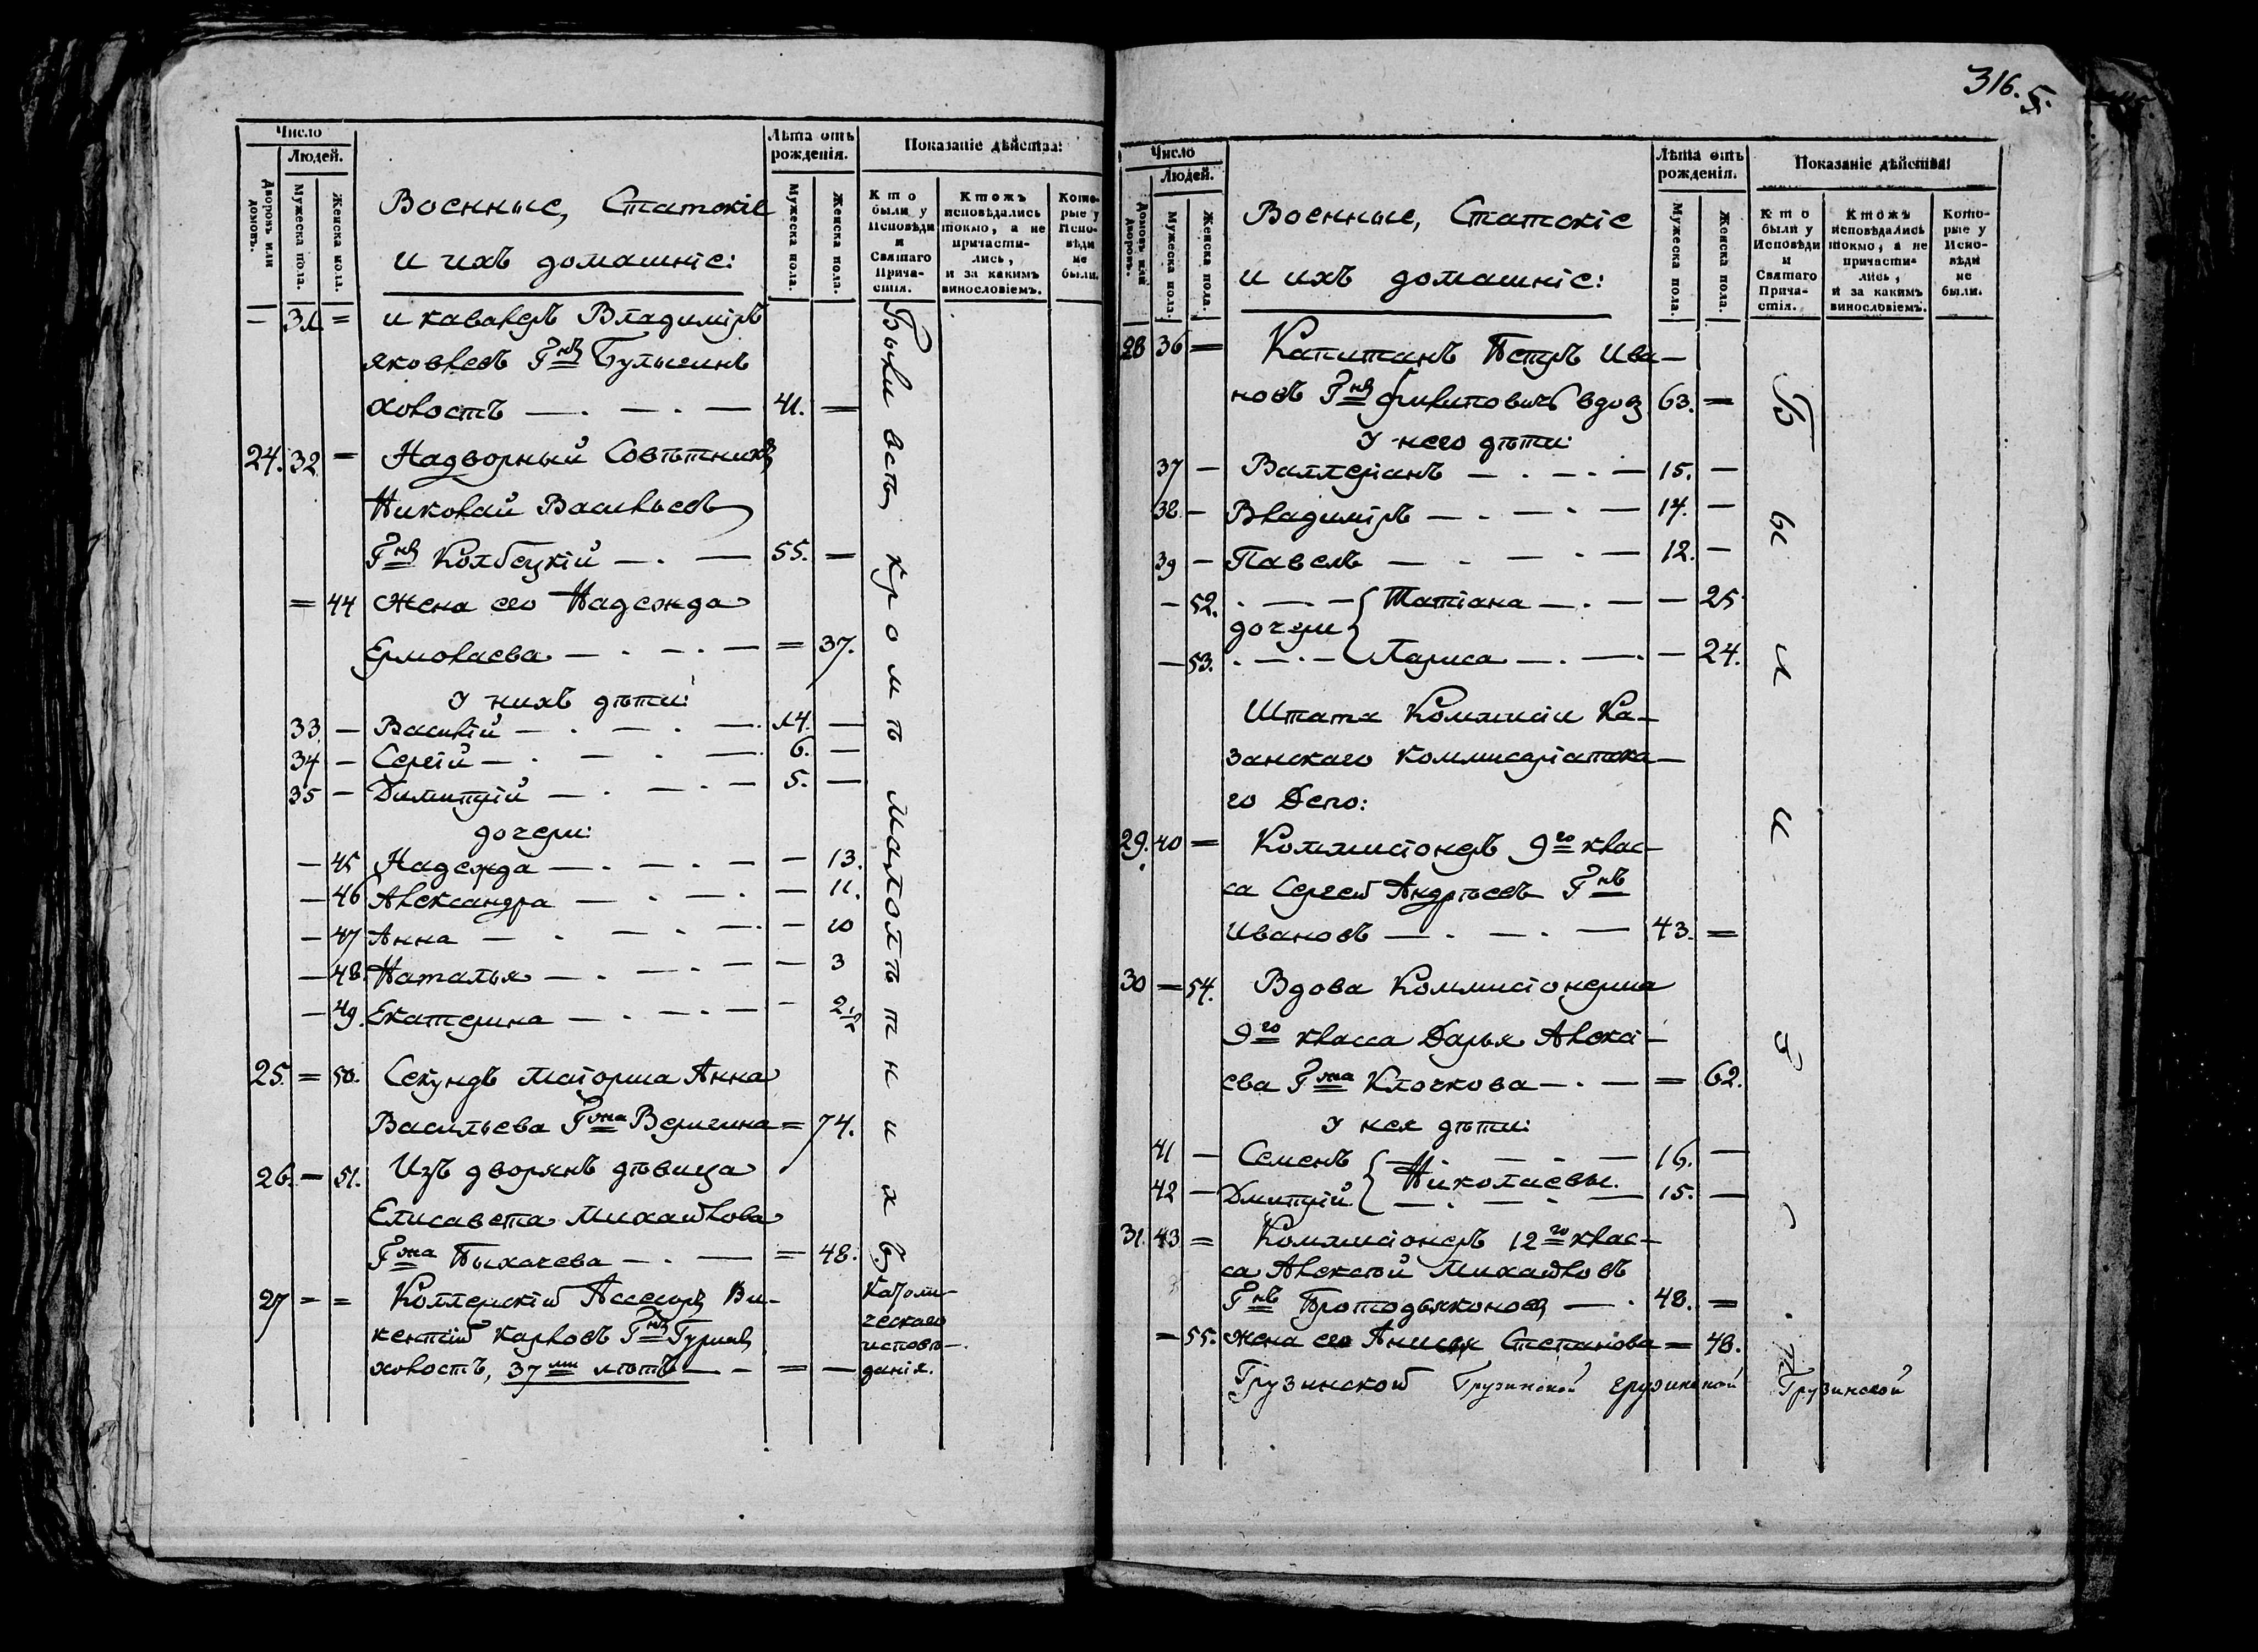 Число
Людей.
Дворовъ или домовъ.
Мужеска пола.
Женска пола.
Военные, Статскіе
и ихъ домашніе:
Лѣта отъ рожденія.
Мужеска пола.
Женска пола.
Показаніе дѣйства:
Кто были у Исповѣди и Святаго Прича-стія.
Ктожъ исповѣдались токмо, а не причасти-лись, и за какимъ винословіемъ.
Кото-рые у Испо-вѣди не были.
— 31. = и кавалеръ Владиміръ
Яковлевъ Гнъ Булыгинъ
холостъ — . — . — 41. =
24. 32 = Надворный Совѣтникъ
Николай Васильевъ
Гнъ Колбецкій — . — 55. =
= 44 Жена его Надежда
Ермолаева — . — . — = 37.
У нихъ дѣти:
33. — Василій — . — . — 14. —
34 — Сергій — . — . — 6. —
35 — Димитрій — . — . — 5. —
дочери:
— 45 Надежда — . — . — — 13.
— 46 Александра — . — . — 11.
— 47 Анна — . — . — — 10
— 48. Наталья — . — . — — 3
— 49. Екатерина — . — . — — 2 1/2
25. = 50. Секундъ маіорша Анна
Васильева Гжа Веригина = 74.
26. — 51. Изъ дворянъ дѣвица
Елисавета Михайлова
Гжа Пыхачева — . — = 48.
27 = = Коллежскій Асесоръ Ви-
кентій Карловъ Гнъ
холостъ, 37ми лѣтъ — — = —
Были всѣ кромѣ малолѣтнихъ
Католи-
ческаго
исповѣ-
данія.
316. 5.
Число
Людей.
Домовъ или дворовъ.
Мужеска пола.
Женска пола.
Военные, Статскіе
и ихъ домашніе:
Лѣта отъ рожденія.
Мужеска пола.
Женска пола.
Показаніе дѣйства:
Кто были у Исповѣди и Святаго Прича-стія.
Ктожъ исповѣдались токмо, а не причасти-лись, и за какимъ винословіемъ.
Кото-рые у Испо-вѣди не были.
28 36 = Капитанъ Петръ Ива—
новъ Гнъ Филиповъ вдов 63. =
У него дѣти:
37 — Валлеріанъ — . — . — 15. —
38. — Владиміръ — . — . — 14. —
39 — Павелъ — . — . — 12. —
— 52. . — . — Татіана — . — — 25
дочери
— 53. . — . — Лариса — . — . — 24.
Штата Коммисіи Ка—
занскаго Коммисаріатска—
го Депо:
29. 40 = Коммисіонеръ 9го клас—
са Сергей Андрѣевъ Гнъ
Ивановъ — . — . — 43. =
30 = 54. Вдова Коммисіонерша
9го класса Дарья Алекс
ѣва Гжа Клочкова — . — = 62.
У нея дѣти:
41 — Семенъ — — . — 16. —
Николаевы.
42 — Дмитрій — . — . — 15. —
31. 43 = Коммисіонеръ 12го клас—
са Алексѣй Михайловъ
Гнъ Протодьяконовъ — . 48. =
— 55. жена его Анисья Степанова = 48.
Были
Грузинской Грузинской грузинской Грузинской